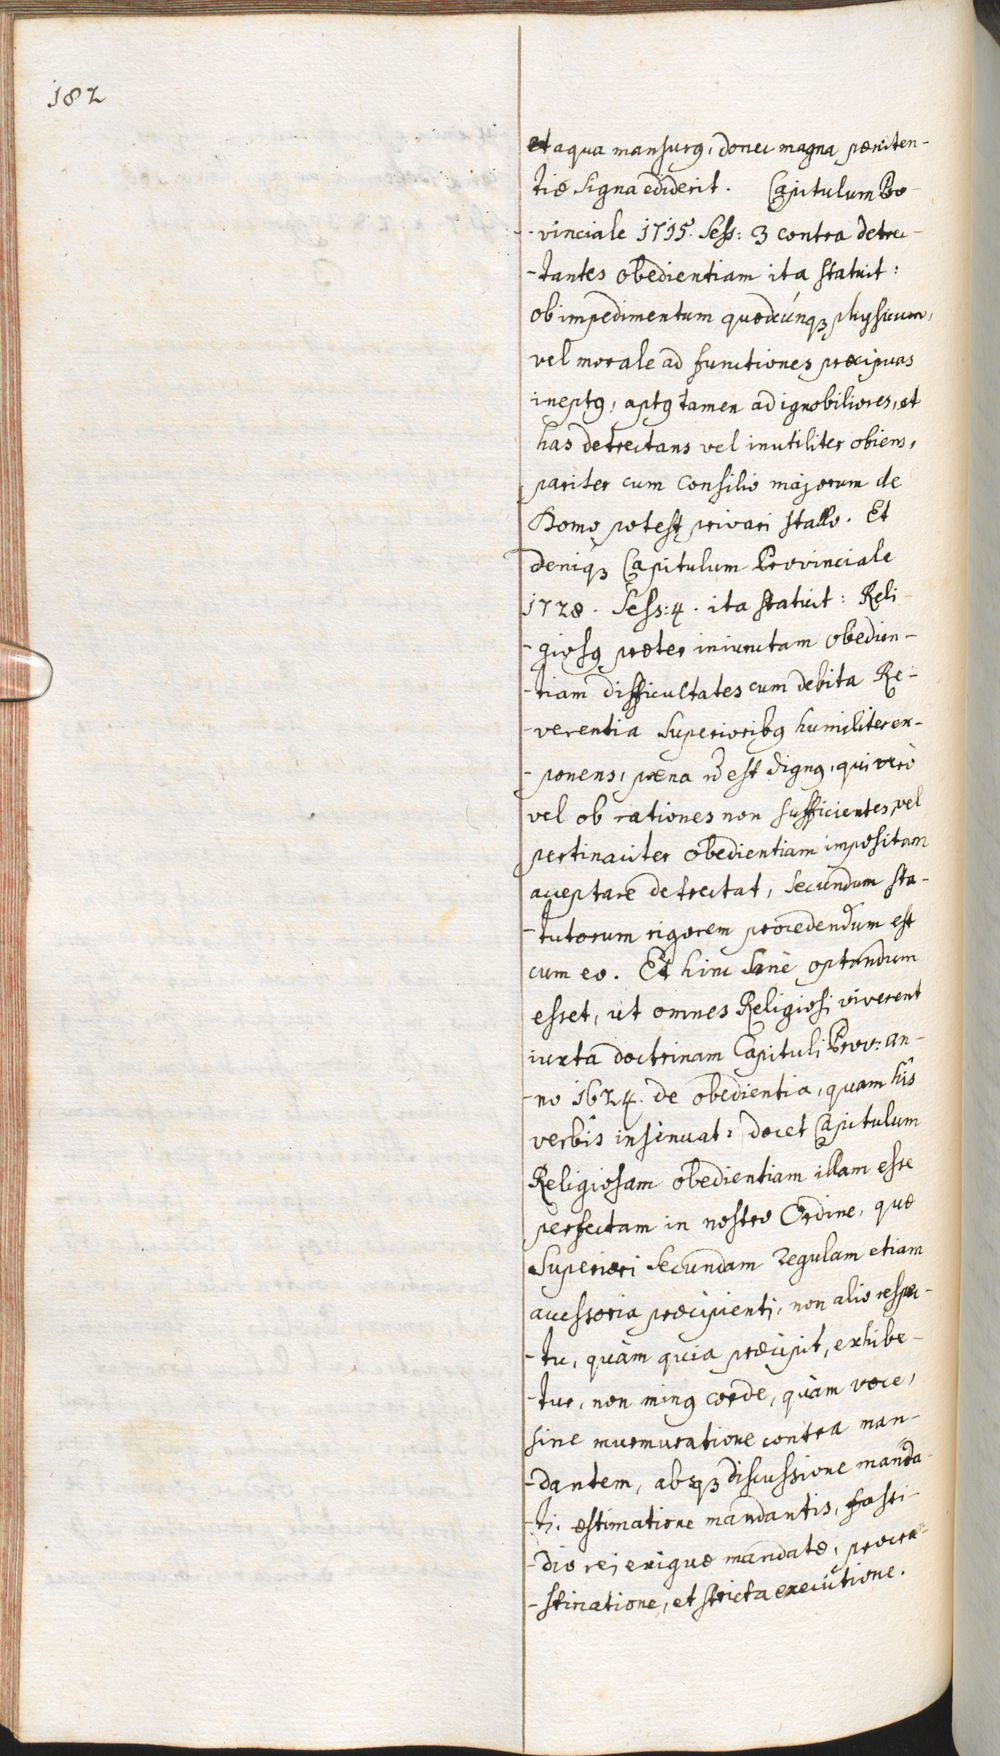 182
et aqua mansurꝯ, donec magna pæniten-
tiæ Signa ediderit. Capitulum Pro-
-vinciale 1715. Sess: 3 contra detrec-
-tantes obedientiam ita statuit:
ob impedimentum quodcúnqꝫ physicum,
vel morale ad functiones præcipuas
ineptꝯ, aptꝯ tamen ad ignobiliores, et
has detrectans vel inutiliter obiens,
pariter cum Consilio majorum de
Domo potest privari stallo. Et
deniqꝫ Capitulum Provinciale
1728. Sess: 4. ita statuit: Reli-
-giosꝯ præter iniunctam obedien-
-tiam difficultates cum debita Re-
-verentia Superioribꝯ humiliter ex-
-ponens, pæna ñ est dignꝯ, qui verò
vel ob rationes non sufficientes, vel
pertinaciter obedientiam impositam
acceptare detrectat, secúndum sta-
-tutorum rigorem procedendum est
cum eo. Et hinc sanè optandum
esset, ut omnes Religiosi viverent
iuxta doctrinam Capituli Prov: an-
-no 1624. de obedientia, quam his
verbis insinuat: docet Capitulum
Religiosam obedientiam illam esse
perfectam in nostro Ordine, quæ
Superiori secundam Regulam etiam
accessoria præcipienti, non alio respec-
-tu, quàm quia præcipit, exhibe-
-tur, non minꝯ corde, quàm voce,
sine murmuratione contra man-
-dantem, absqꝫ discussione manda-
-ti, æstimatione mandantis, fasti-
-dio rei exiguæ mandatæ, procra-
-stinatione, et stricta execútione.